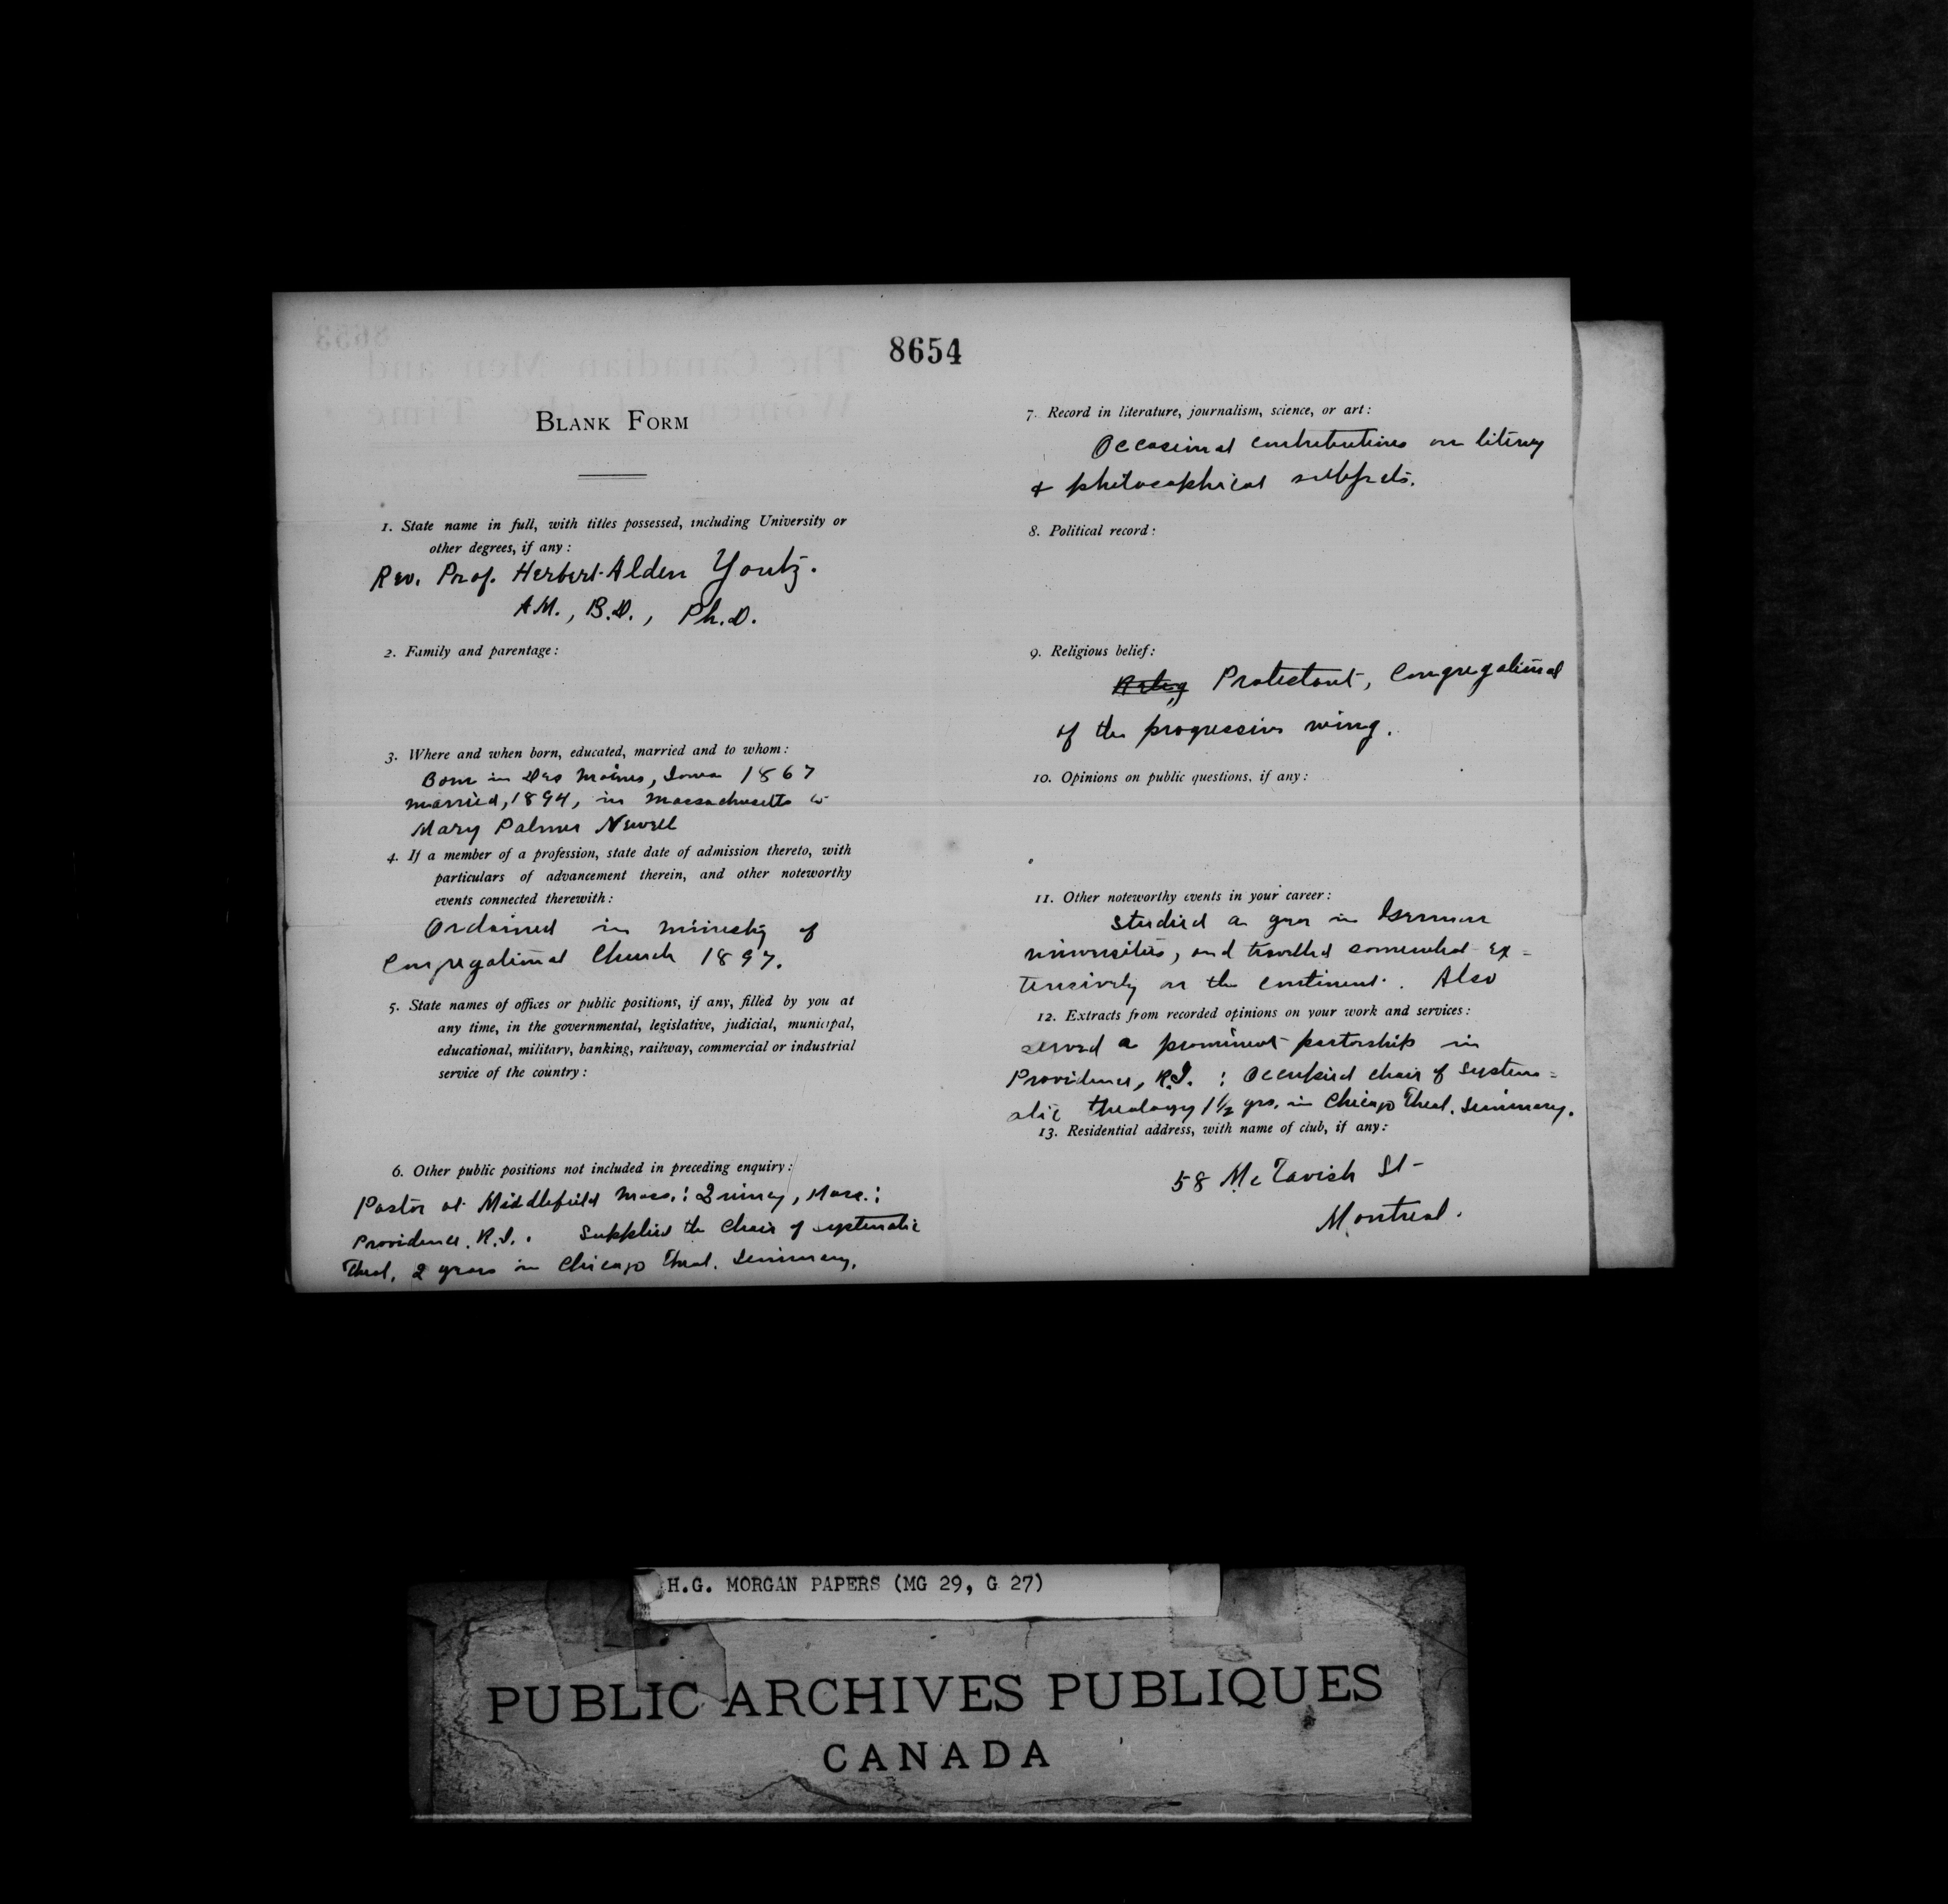 8654
BLANK FORM
1. State name in full, with titles possessed, including University or
other degrees, if any:
Rev. Prof. Herbert Alden Youtz.
A.M., B.D., Ph.D.
2. Family and parentage:
3. Where and when born, educated, married and to whom:
Born in Des Moines, Iowa 1867
married, 1894, in Massachusetts to
Mary Palmer Newell
4. If a member of a profession, state date of admission thereto, with
particulars of advancement therein, and other noteworthy
events connected therewith:
Ordained in ministry of
Congregational Church 1897.
5. State names of offices or public positions, if any, filled by you at
any time, in the governmental, legislative, judicial, municipal,
educational, military, banking, railway, commercial or industrial
service of the country:
6. Other public positions not included in preceding enquiry:
Pastor at Middlefield Mass.; Quincy, Mass.;
Providence, R.I. Supplied the Chair of Systematic
Theol. 2 years in Chicago Theol. Seminary.
7. Record in literature, journalism, science, or art:
Occasional contributions on literary
& philosophical subjects.
8. Political record:
9. Religious belief:
Protestant, Congregational
of the progressive wing.
10. Opinions on public questions, if any:
11. Other noteworthy events in your career:
Studied a year in German
universities, and travelled somewhat ex=
tensively on the continent. Also
12. Extracts from recorded opinions on your work and services:
served a prominent pastorship in
Providence, R.I.; Occupied chair of System=
atic theology 1½ yrs. in Chicago Theol. Seminary.
13. Residential address, with name of club, if any:
58 McTavish St
Montreal.
H.G. MORGAN PAPERS (MG 29, G 27)
PUBLIC ARCHIVES PUBLIQUES
CANADA